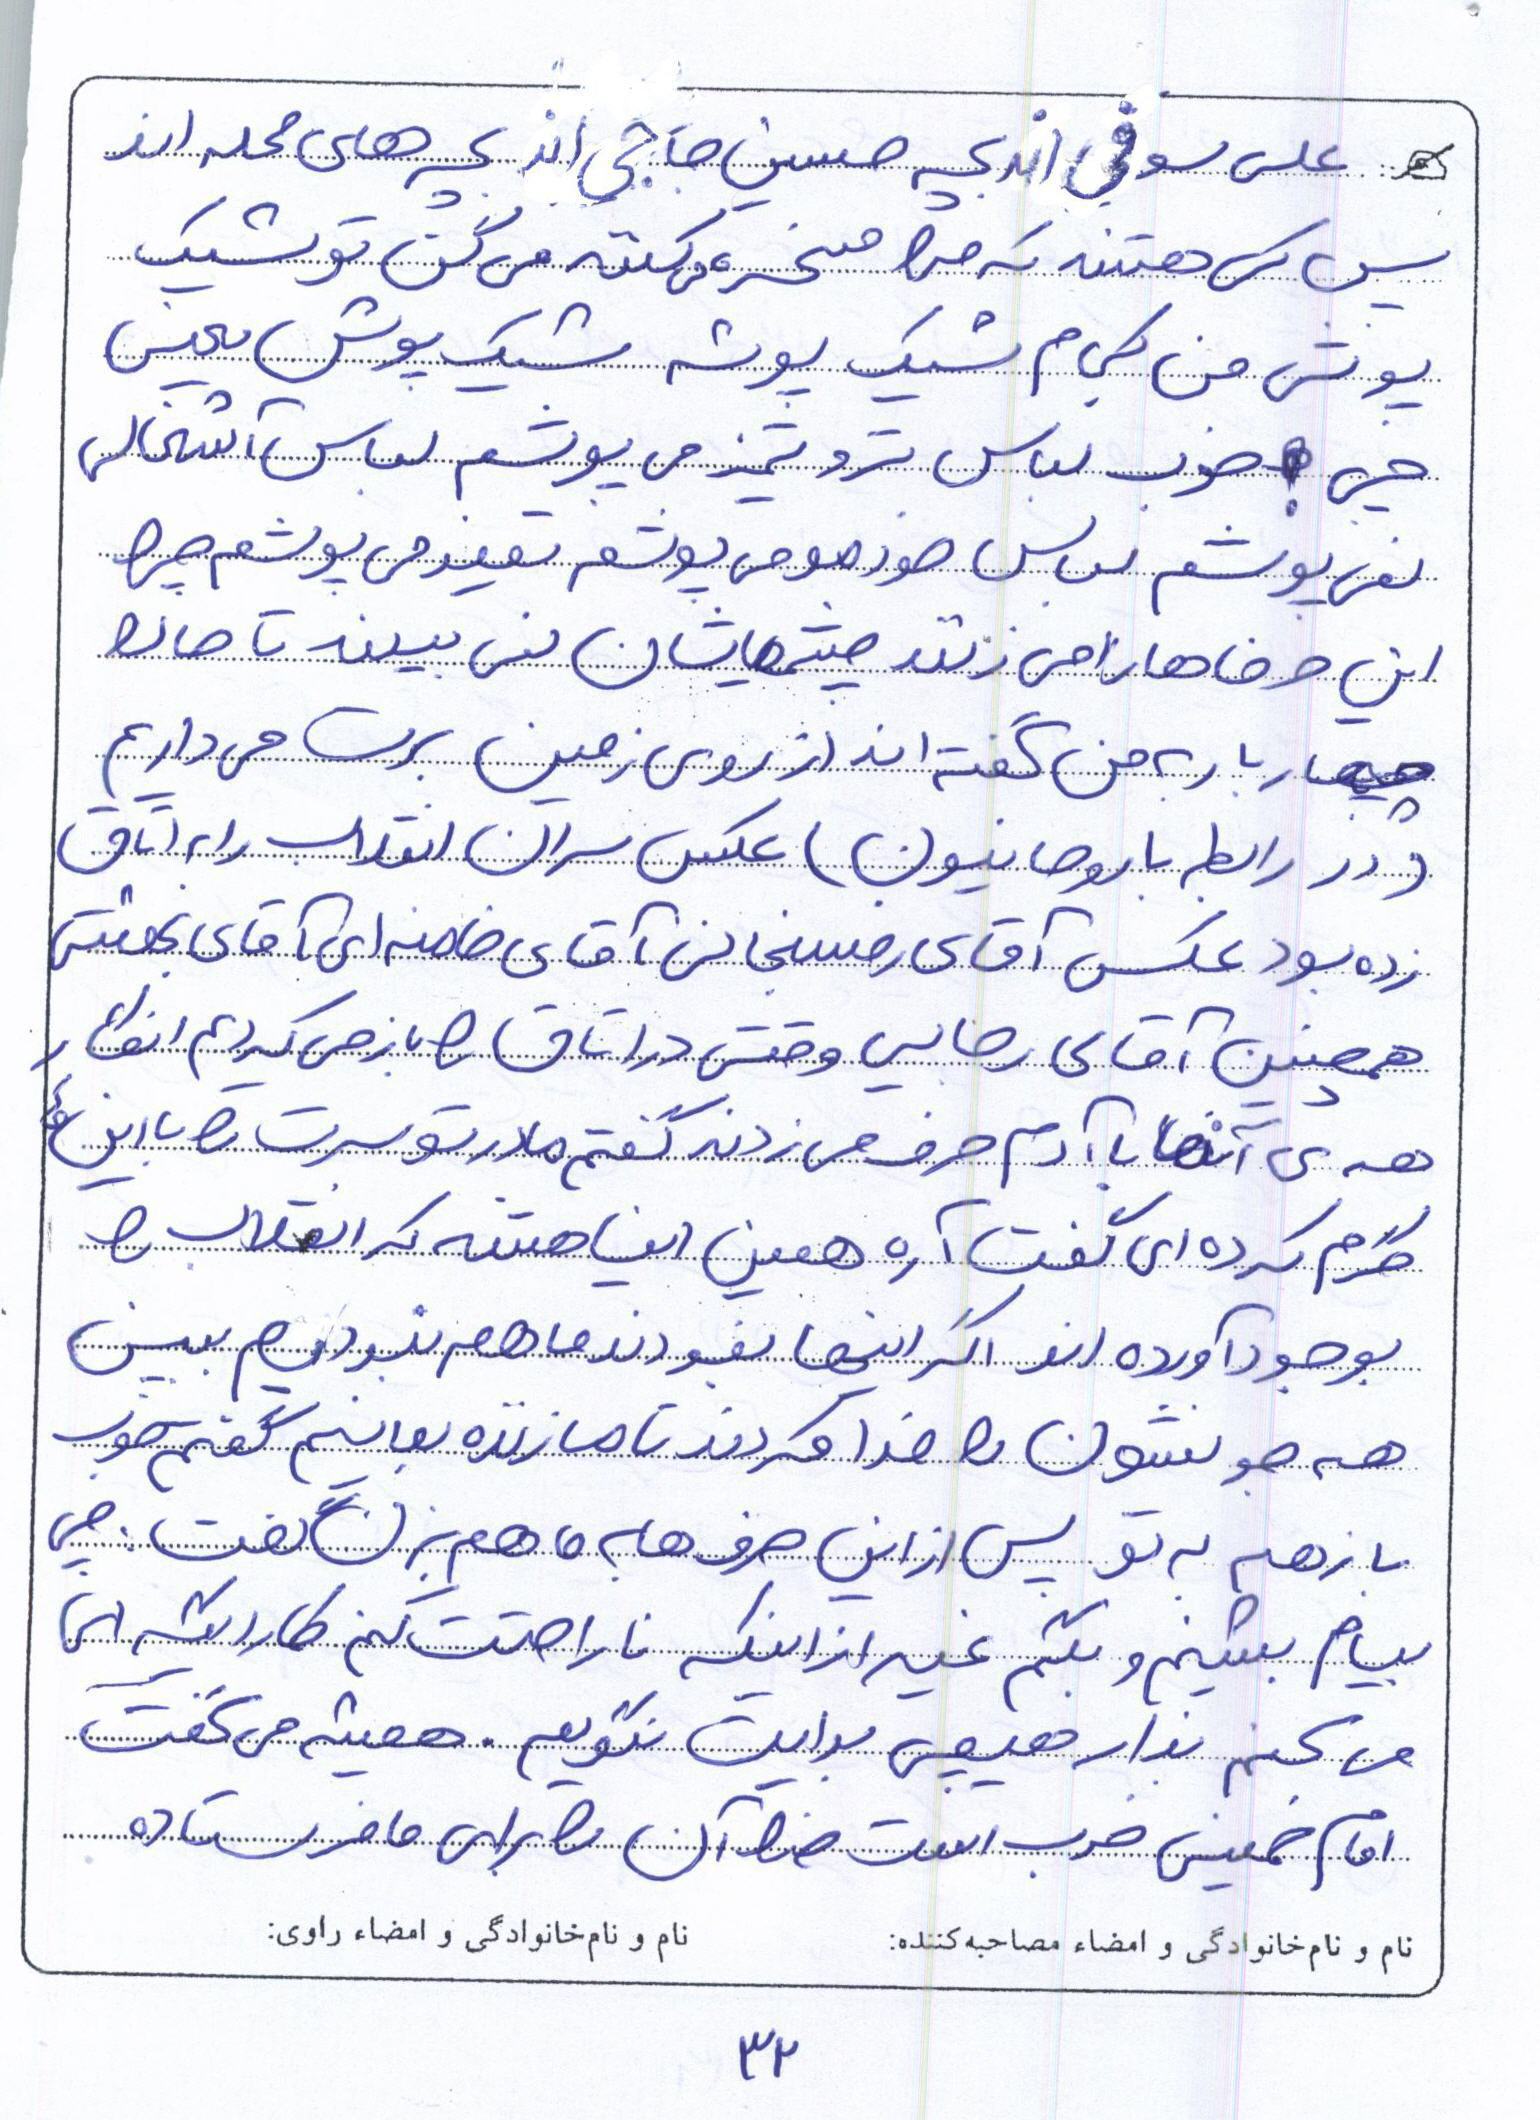 علی سوفی اند بچه حسین حاجی اند بچه های محله اند
پس کی هستند که مرا مسخره می کنند می گن تو شیک
پوش من کجام شیک پوشه شیک پوش یعنی
چی ؟ خوب لباس تر و تمیز می پوشم لباس آشغالی
نمی پوشم لباس خودمو می پوشم تمیز می پوشم چرا
این حرفها را می زنند چشمهایشان نمی بیند تا حالا
چهار بار به من گفته اند از روی زمین برت می داریم
( در رابطه با روحانیون ) عکس سران انقلاب را به اتاق
زده بود عکس آقای رفسنجانی آقای خامنه ای آقای بهشتی
همچنین آقای رجایی وقتی در اتاق را باز می کردیم انگار
همه ی آنها با آدم حرف می زدند گفتم مادر تو سرت را با این
گرم کرده ای گفت آره همین اینا هستند که انقلاب را
بوجود آورده اند اگر اینها نبودند ما هم نبودیم ببین
همه جونشون را فدا کردند تا ما زنده بمانیم گفتم خوب
بازهم به تو پس از این حرف ها به ما هم بزن گفت : چی
بیام بشینم و بگم غیر از اینکه ناراحتت کنم کار دیگه ای
می کنم بذار هیچی برایت نگویم . همیشه می گفت
امام خمینی خوب است خدا آن را برای ما فرستاده
نام و نام خانوادگی و امضاء مصاحبه کننده: نام و نام خانوادگی و امضاء راوی:
۳۲